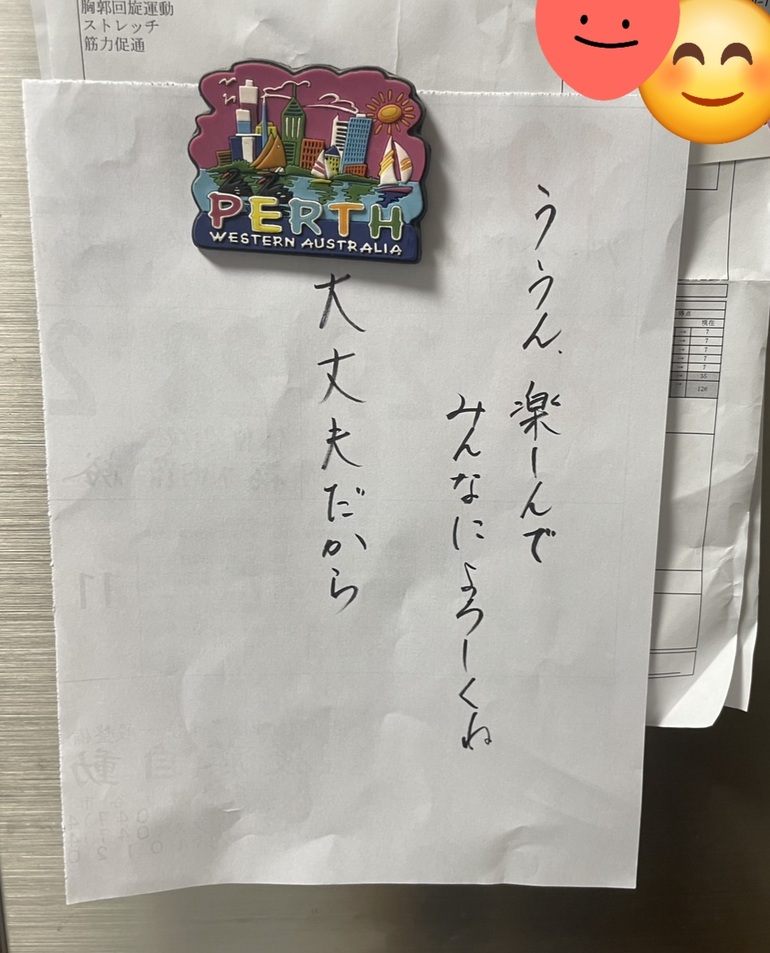 胸郭回旋運動
ストレッチ
筋力促通
PERTH
WESTERN AUSTRALIA
ううん、楽しんで
みんなによろしくね
大丈夫だから
得点
現在
7
7
7
7
7
55
126